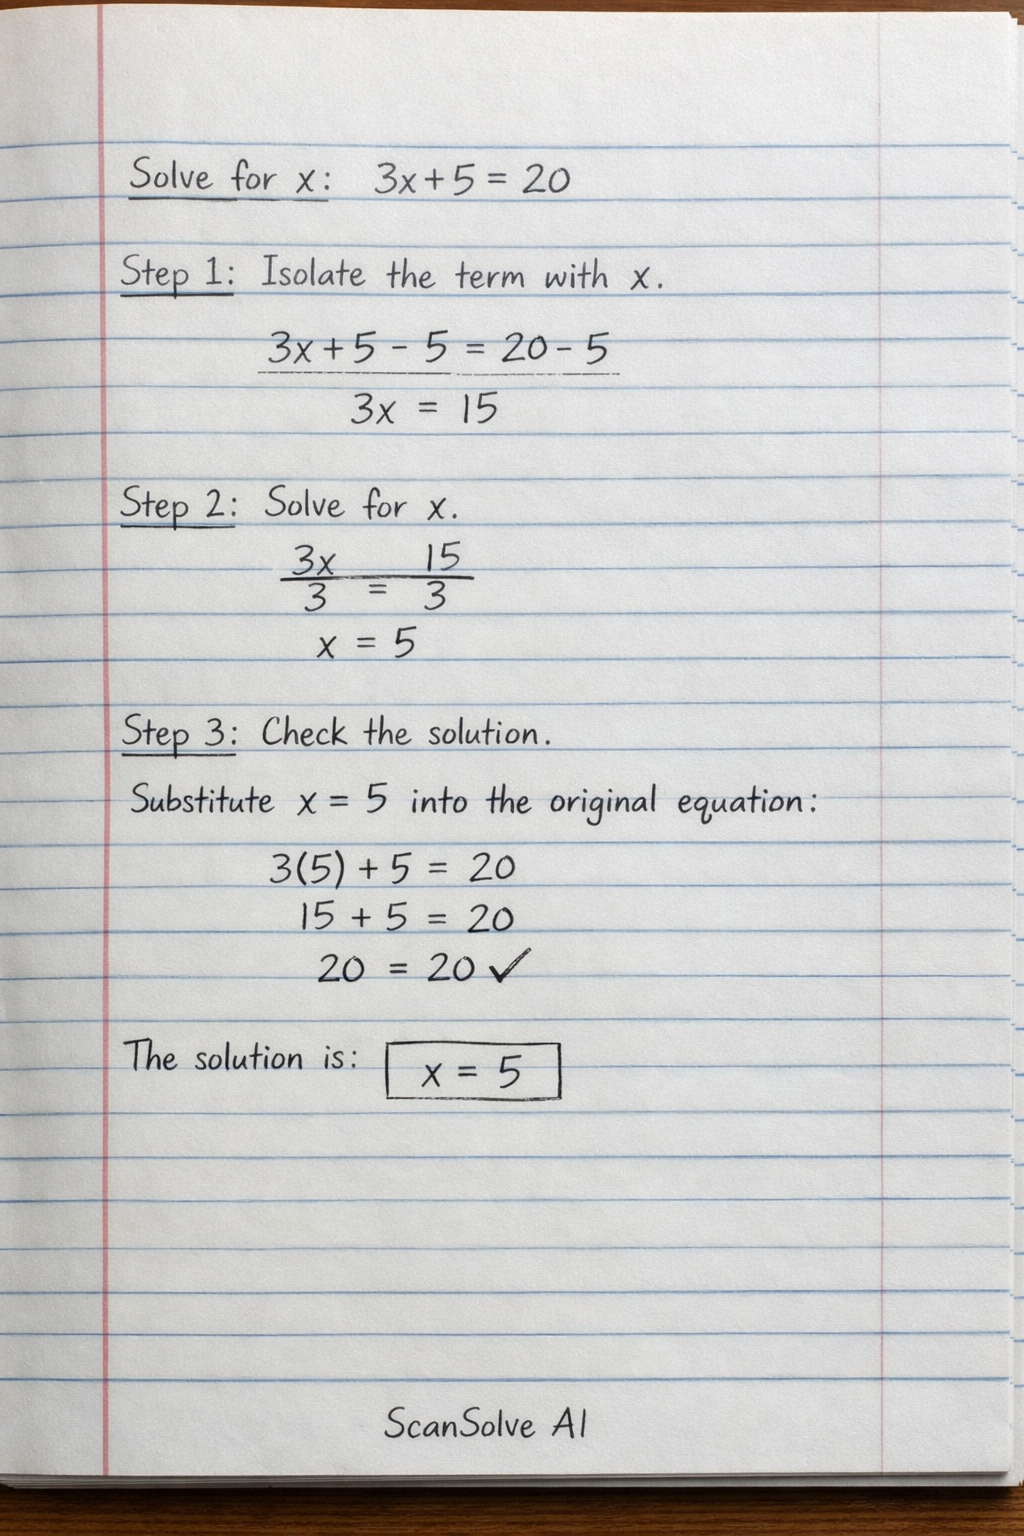 Solve for x: 3x+5 = 20
Step 1: Isolate the term with x.
3x+5 - 5 = 20-5
3x = 15
Step 2: Solve for x.
3x 15
3 = 3
x = 5
Step 3: Check the solution.
Substitute x = 5 into the original equation:
3(5) + 5 = 20
15 + 5 = 20
20 = 20 ✓
The solution is: x = 5
ScanSolve AI